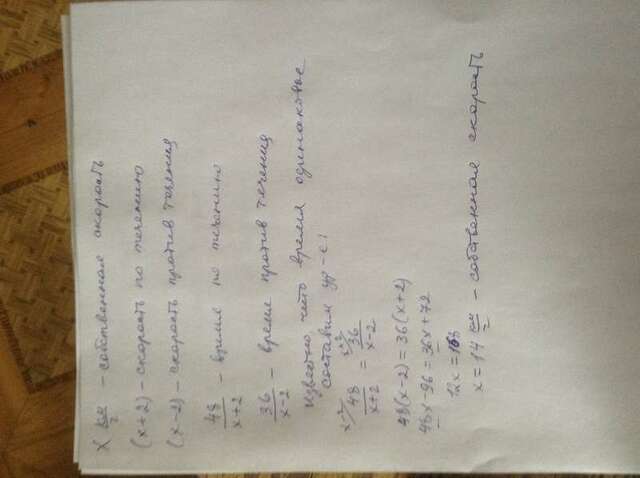 x км/г - собственная скорость
(x+2) - скорость по течению
(x-2) - скорость против течения
48/(x+2) - время по течению
36/(x-2) - время против течения
известно что время одинаковое
составим ур-е:
x-2/ 48/(x+2) = x+2/ 36/(x-2)
48(x-2) = 36(x+2)
48x-96 = 36x+72
12x = 168
x = 14 км/г - собственная скорость